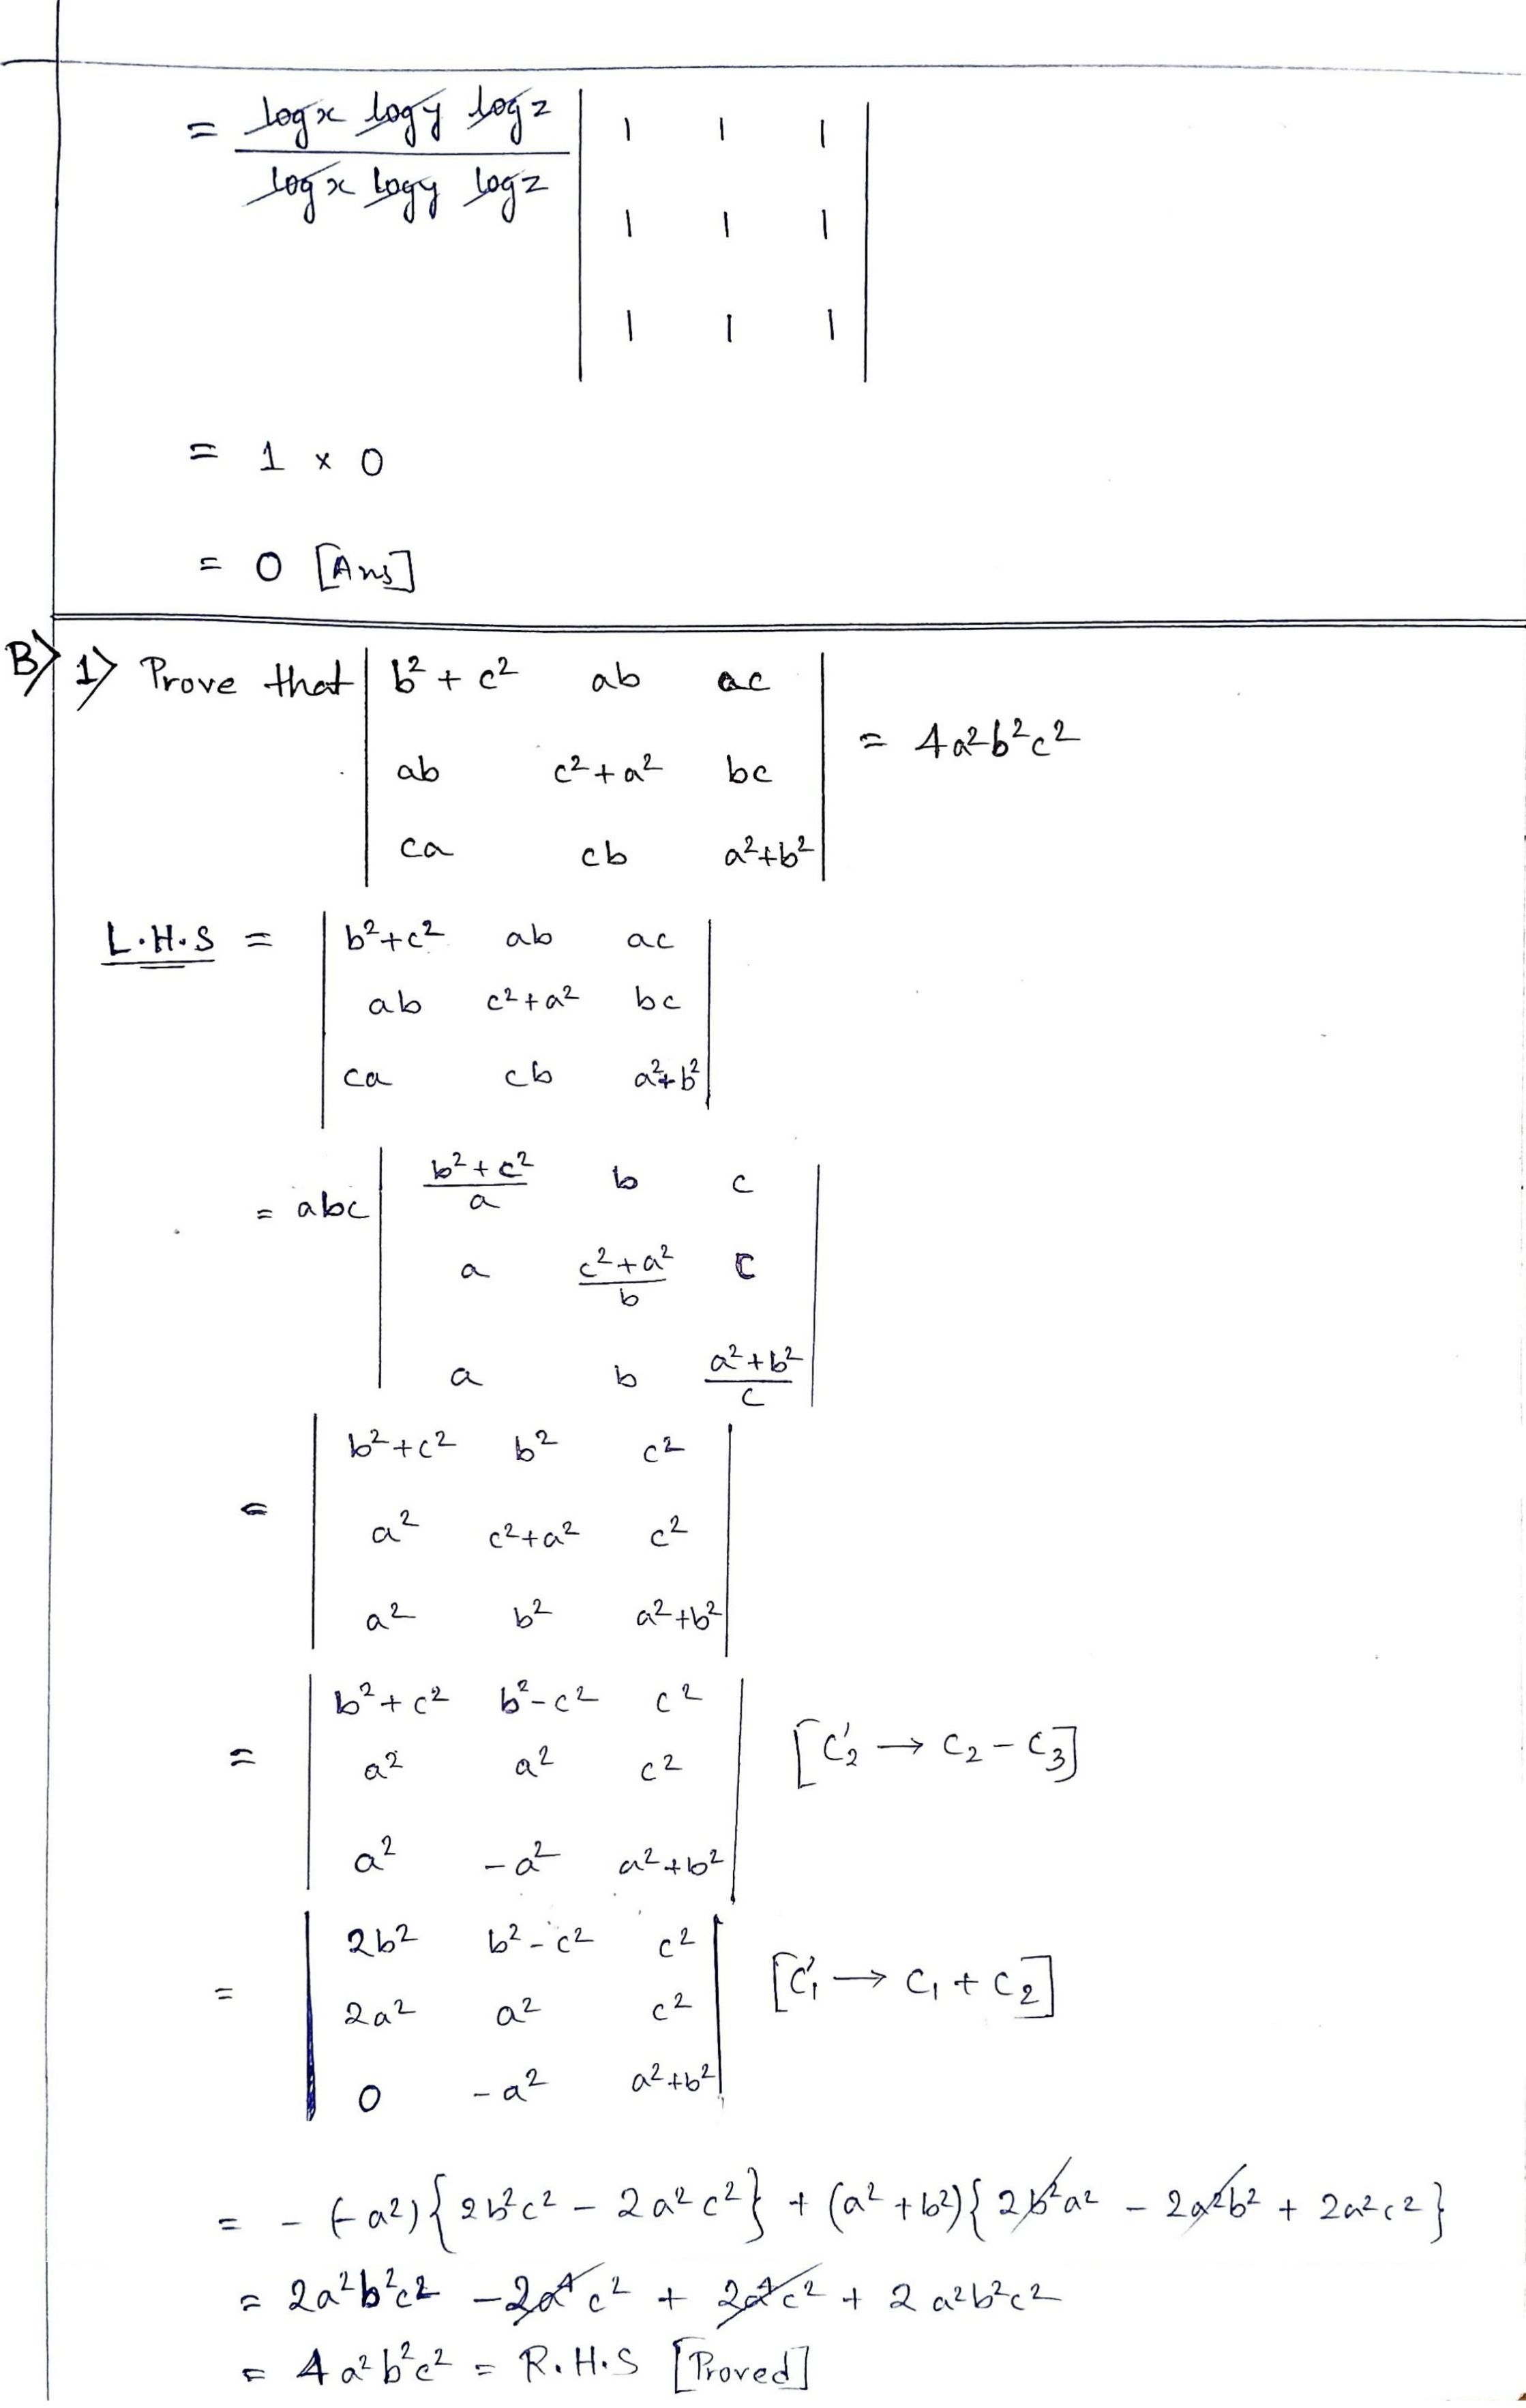 = logx logy logz / logx logy logz | 1 1 1 |
| 1 1 1 |
| 1 1 1 |
= 1 × 0
= 0 [Ans]
B> 1> Prove that | b² + c² ab ac |
| ab c² + a² bc | = 4a²b²c²
| ca cb a²+b² |
L.H.S = | b²+c² ab ac |
| ab c²+a² bc |
| ca cb a²+b² |
= abc | (b²+c²)/a b c |
| a (c²+a²)/b c |
| a b (a²+b²)/c |
= | b²+c² b² c² |
| a² c²+a² c² |
| a² b² a²+b² |
= | b²+c² b²-c² c² |
| a² a² c² | [C₂' → C₂ - C₃]
| a² -a² a²+b² |
= | 2b² b²-c² c² |
| 2a² a² c² | [C₁' → C₁ + C₂]
| 0 -a² a²+b² |
= - (-a²){2b²c² - 2a²c²} + (a²+b²){2b²a² - 2a²b² + 2a²c²}
= 2a²b²c² - 2a⁴c² + 2a⁴c² + 2a²b²c²
= 4a²b²c² = R.H.S [Proved]